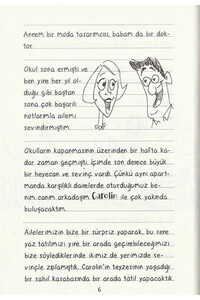 Annem bir moda tasarımcısı, babam da bir dok-
tor.
Okul sona ermişti ve
ben yine her yıl ol-
duğu gibi baştan
sona çok başarılı
notlarımla ailemi
sevindirmiştim.
Okulların kapanmasının üzerinden bir hafta ka-
dar zaman geçmişti. İçimde son derece büyük
bir heyecan ve sevinç vardı. Çünkü aynı apart-
manda karşılıklı dairelerde oturduğumuz be-
nim canım arkadaşım Carolin ile çok yakında
buluşacaktım.
Ailelerimizin bize bir sürpriz yaparak, bu sene
yaz tatilimizi yine bir arada geçirebileceğimizi
bize söylediklerinde ikimiz de yerimizde se-
vinçle zıplamıştık. Carolin'in teyzesinin yaşadığı
bir sahil kasabasında bir arada tatil yapacaktık.
6